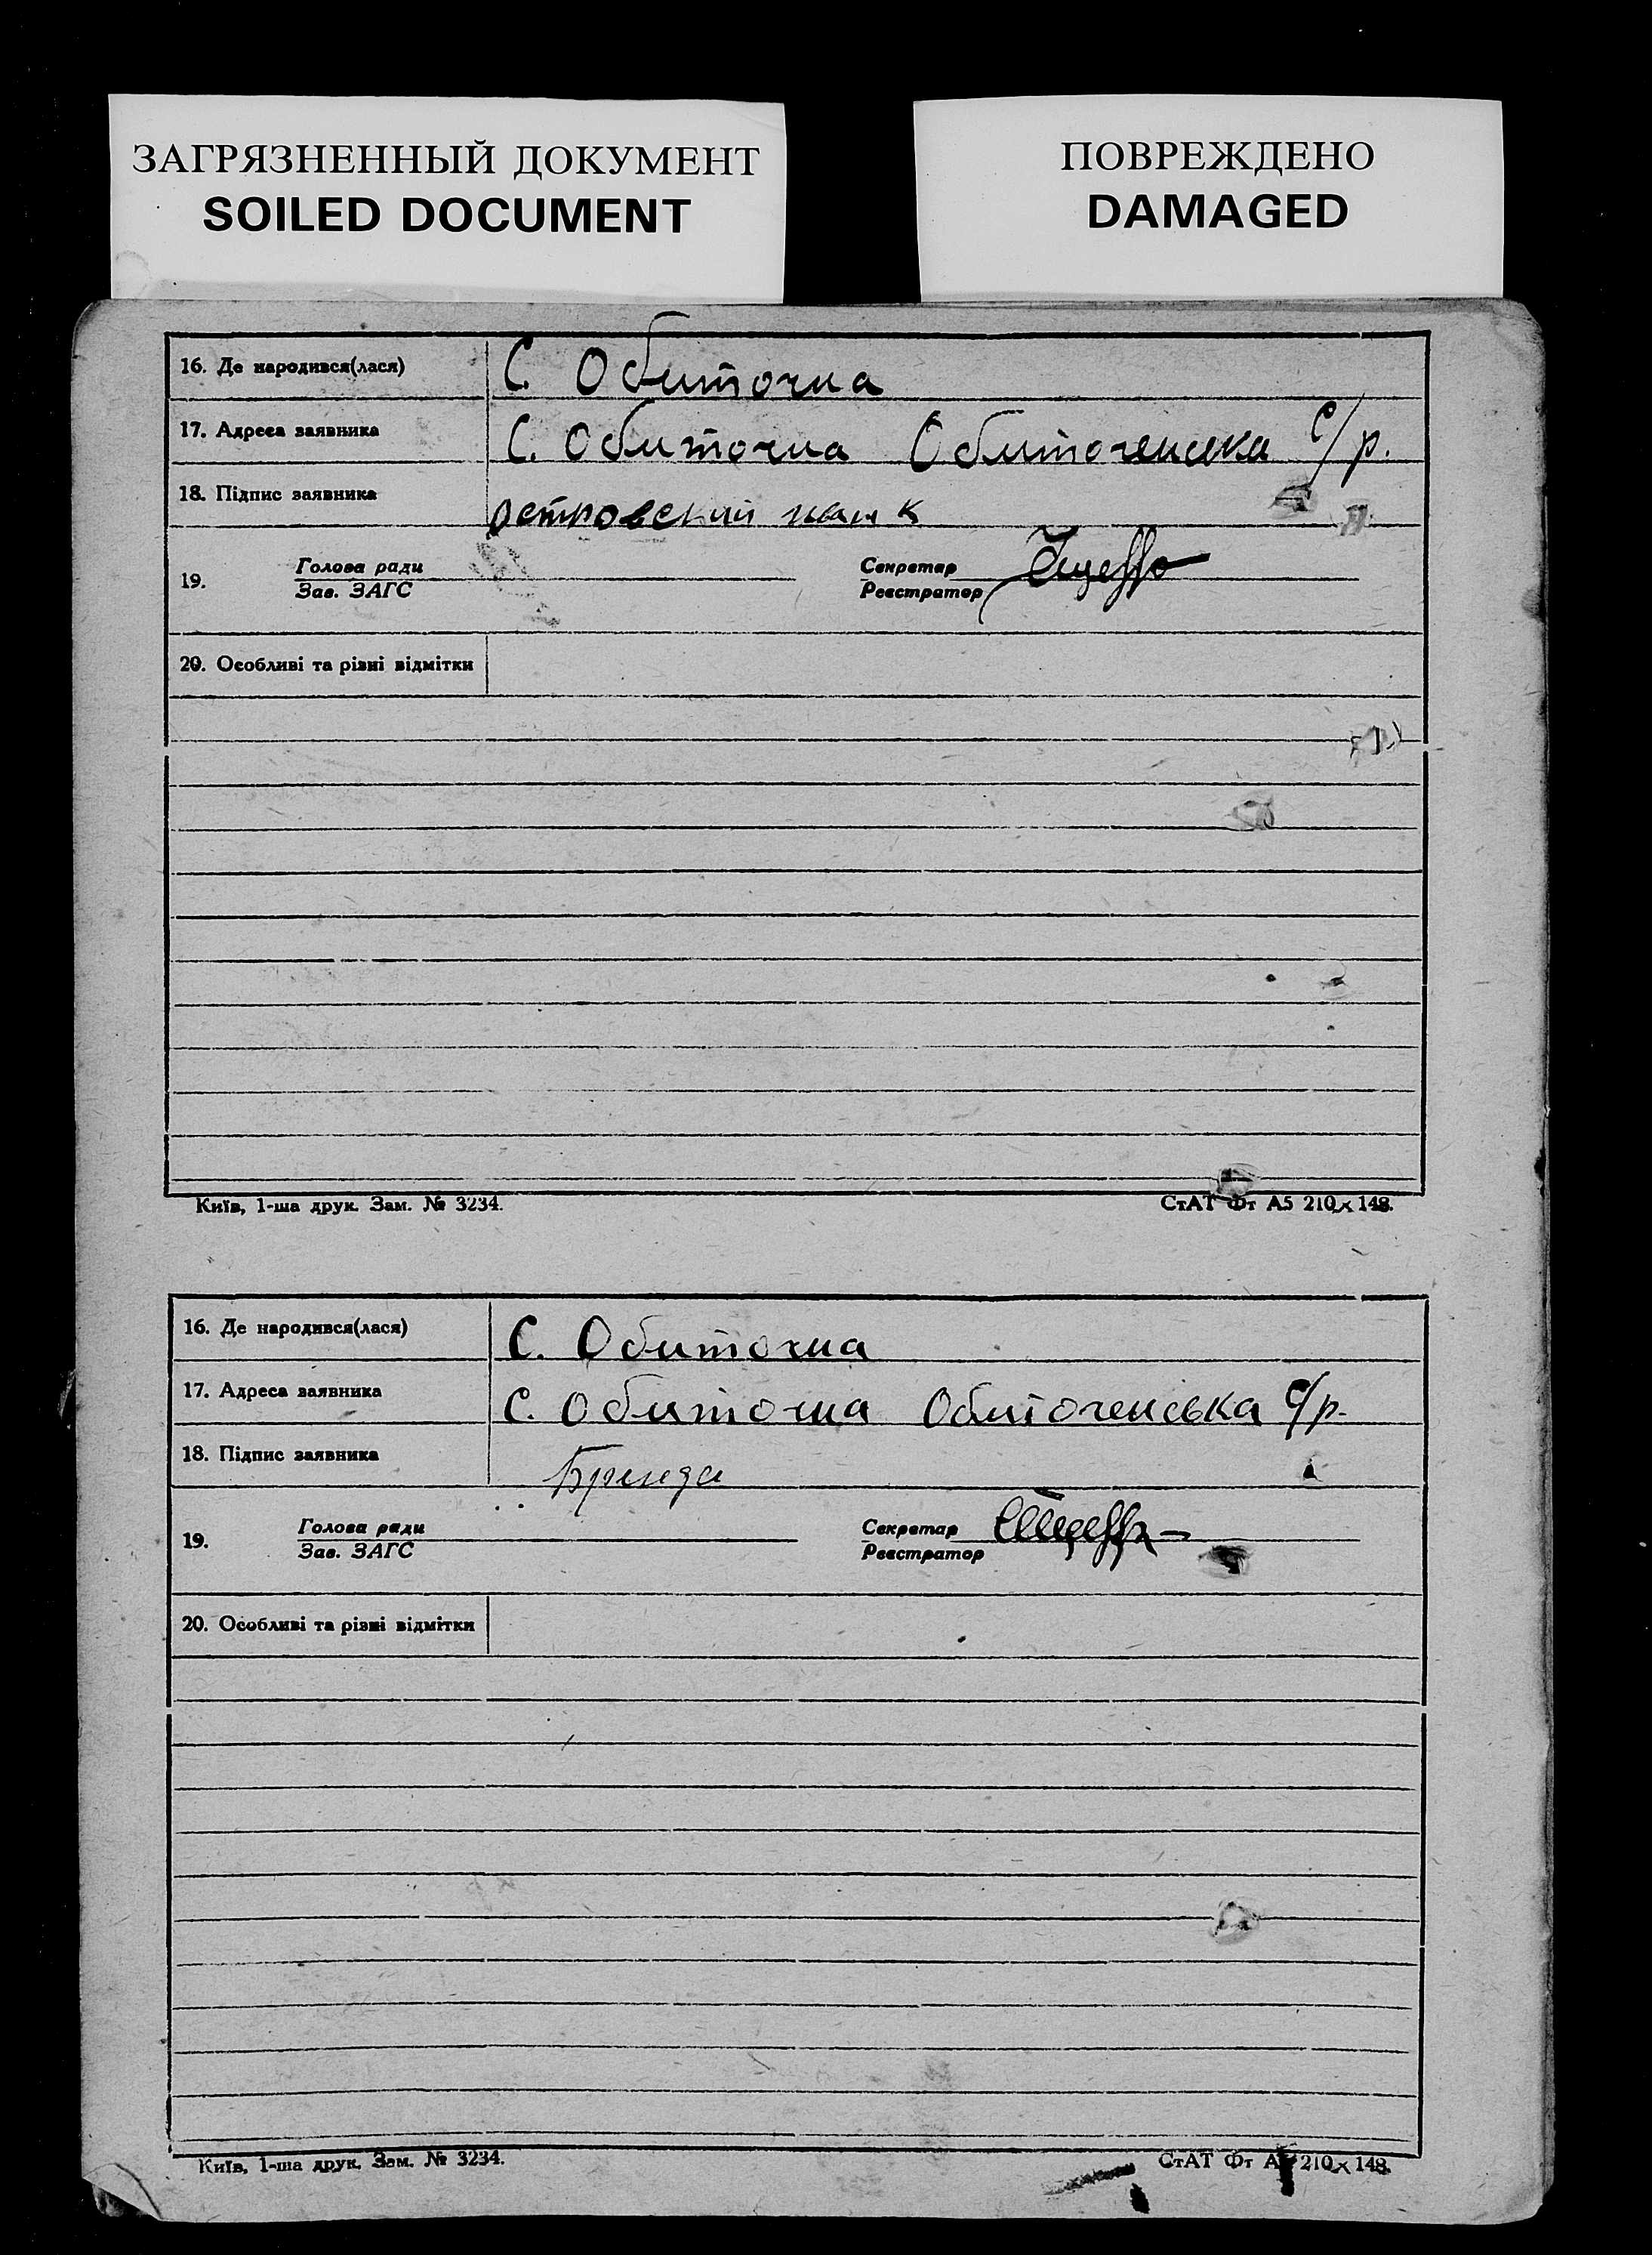 ЗАГРЯЗНЕННЫЙ ДОКУМЕНТ
SOILED DOCUMENT
ПОВРЕЖДЕНО
DAMAGED
16. Де народився(лася) С. Обиточна
17. Адреса заявника С. Обиточна Обиточенська С/р.
18. Підпис заявника островский
19. Голова ради Секретар
Зав. ЗАГС Реєстратор
20. Особливі та різні відмітки
Київ, 1-ша друк. Зам. № 3234. СтАТ Фт А5 210×148.
16. Де народився(лася) С. Обиточна
17. Адреса заявника С. Обиточна Обиточенська С/р.
18. Підпис заявника
19. Голова ради Секретар
Зав. ЗАГС Реєстратор
20. Особливі та різні відмітки
Київ, 1-ша друк. Зам. № 3234. СтАТ Фт А5 210×148.